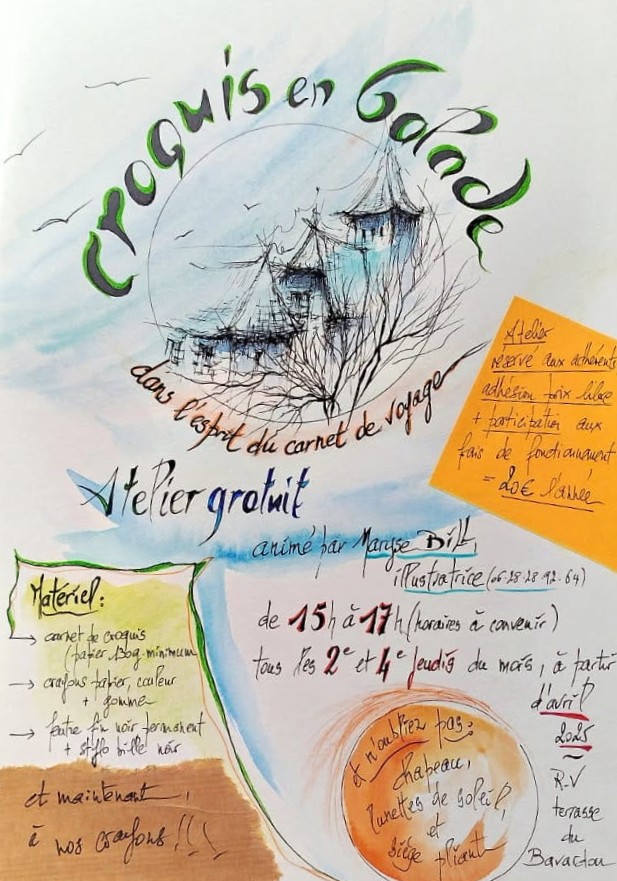 Croquis en balade
dans l'esprit du carnet de voyage
Atelier
réservé aux adhérents
adhésion prix libre
+ participation aux
frais de fonctionnement
= 20€ l'année
Atelier gratuit
animé par Maryse Bill,
illustratrice (06.28.28.92.64)
de 15h à 17h (horaires à convenir)
tous les 2e et 4e jeudis du mois, à partir
d'avril
2025
R-V
terrasse
du
Bavardou
Matériel:
→ carnet de croquis
(papier 130g. minimum
→ crayons papier, couleur
+ gomme
→ feutre fin noir permanent
+ stylo bille noir
et maintenant,
à nos crayons !!!
et n'oubliez pas:
chapeau,
lunettes de soleil,
et
siège pliant